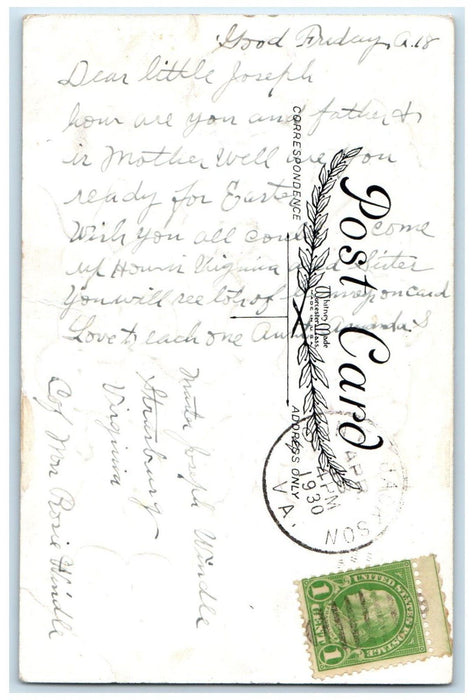 Good Friday, A. 18
Dear little Joseph
how are you and father &
Mother well are you
ready for Easter
Wish you all could come
up Virginia and Sister
You will see lots of on card
Love to each one Aunt Amanda S
Post Card
CORRESPONDENCE
ADDRESS ONLY
Whitney Made
Worcester, Mass.
MADE IN U.S.A.
Master Joseph Windle
Strasburg
Virginia
C/o Mrs Rosie Windle
APR
4 PM
1930
VA.
UNITED STATES POSTAGE
1 CENT 1